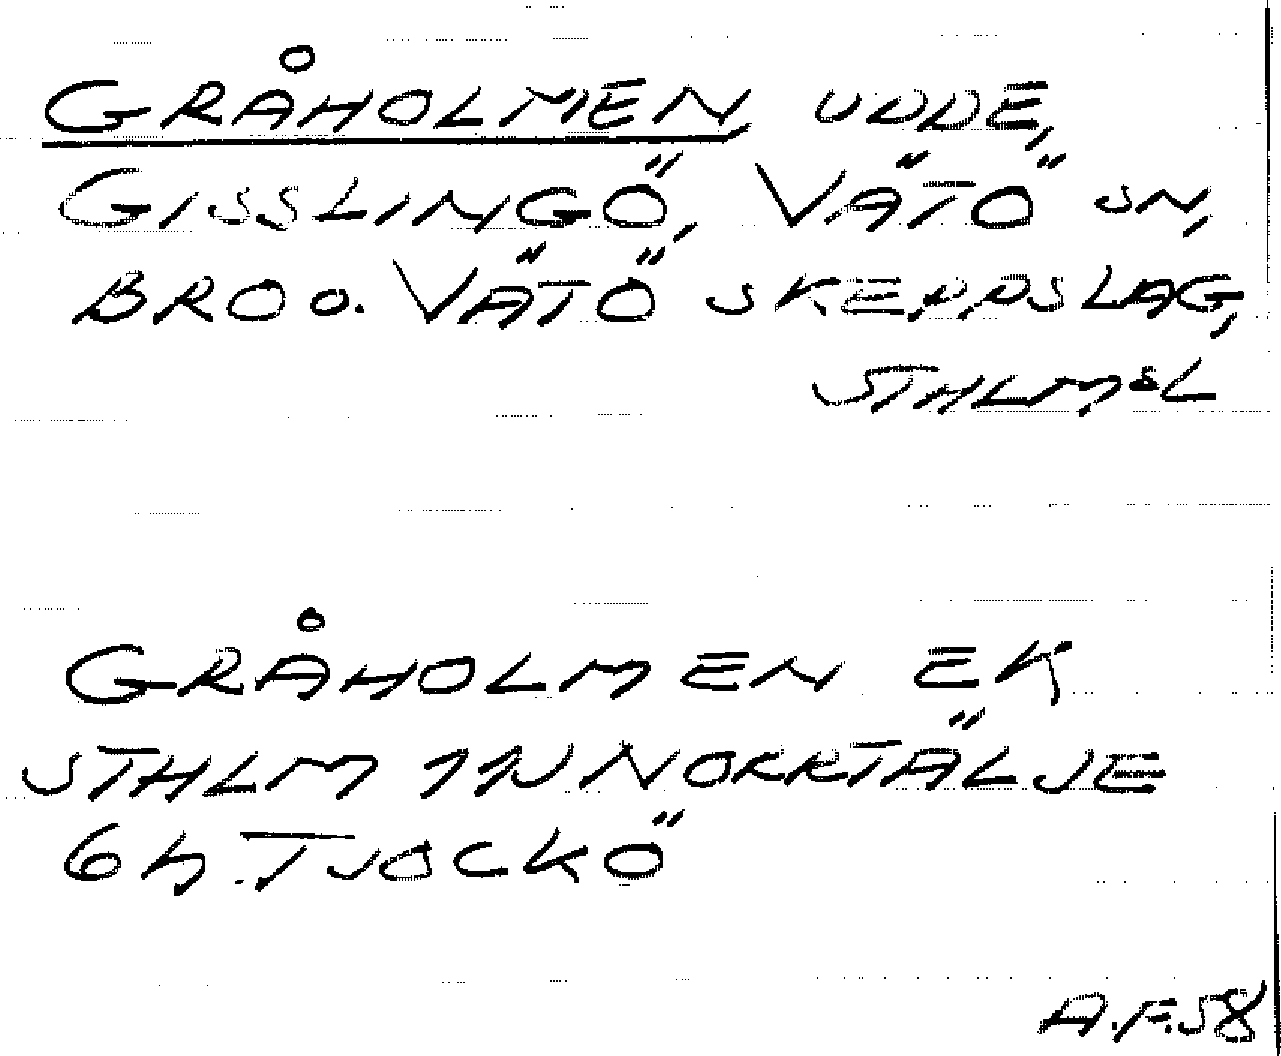 GRÅHOLMEN, UDDE,
GISSLINGÖ, VÄTÖ SN,
BRO O. VÄTÖ SKEPPSLAG,
STHLMSL
GRÅHOLMEN EK
STHLM 11NV NORRTÄLJE
6 h. TJOCKÖ
A.F.58